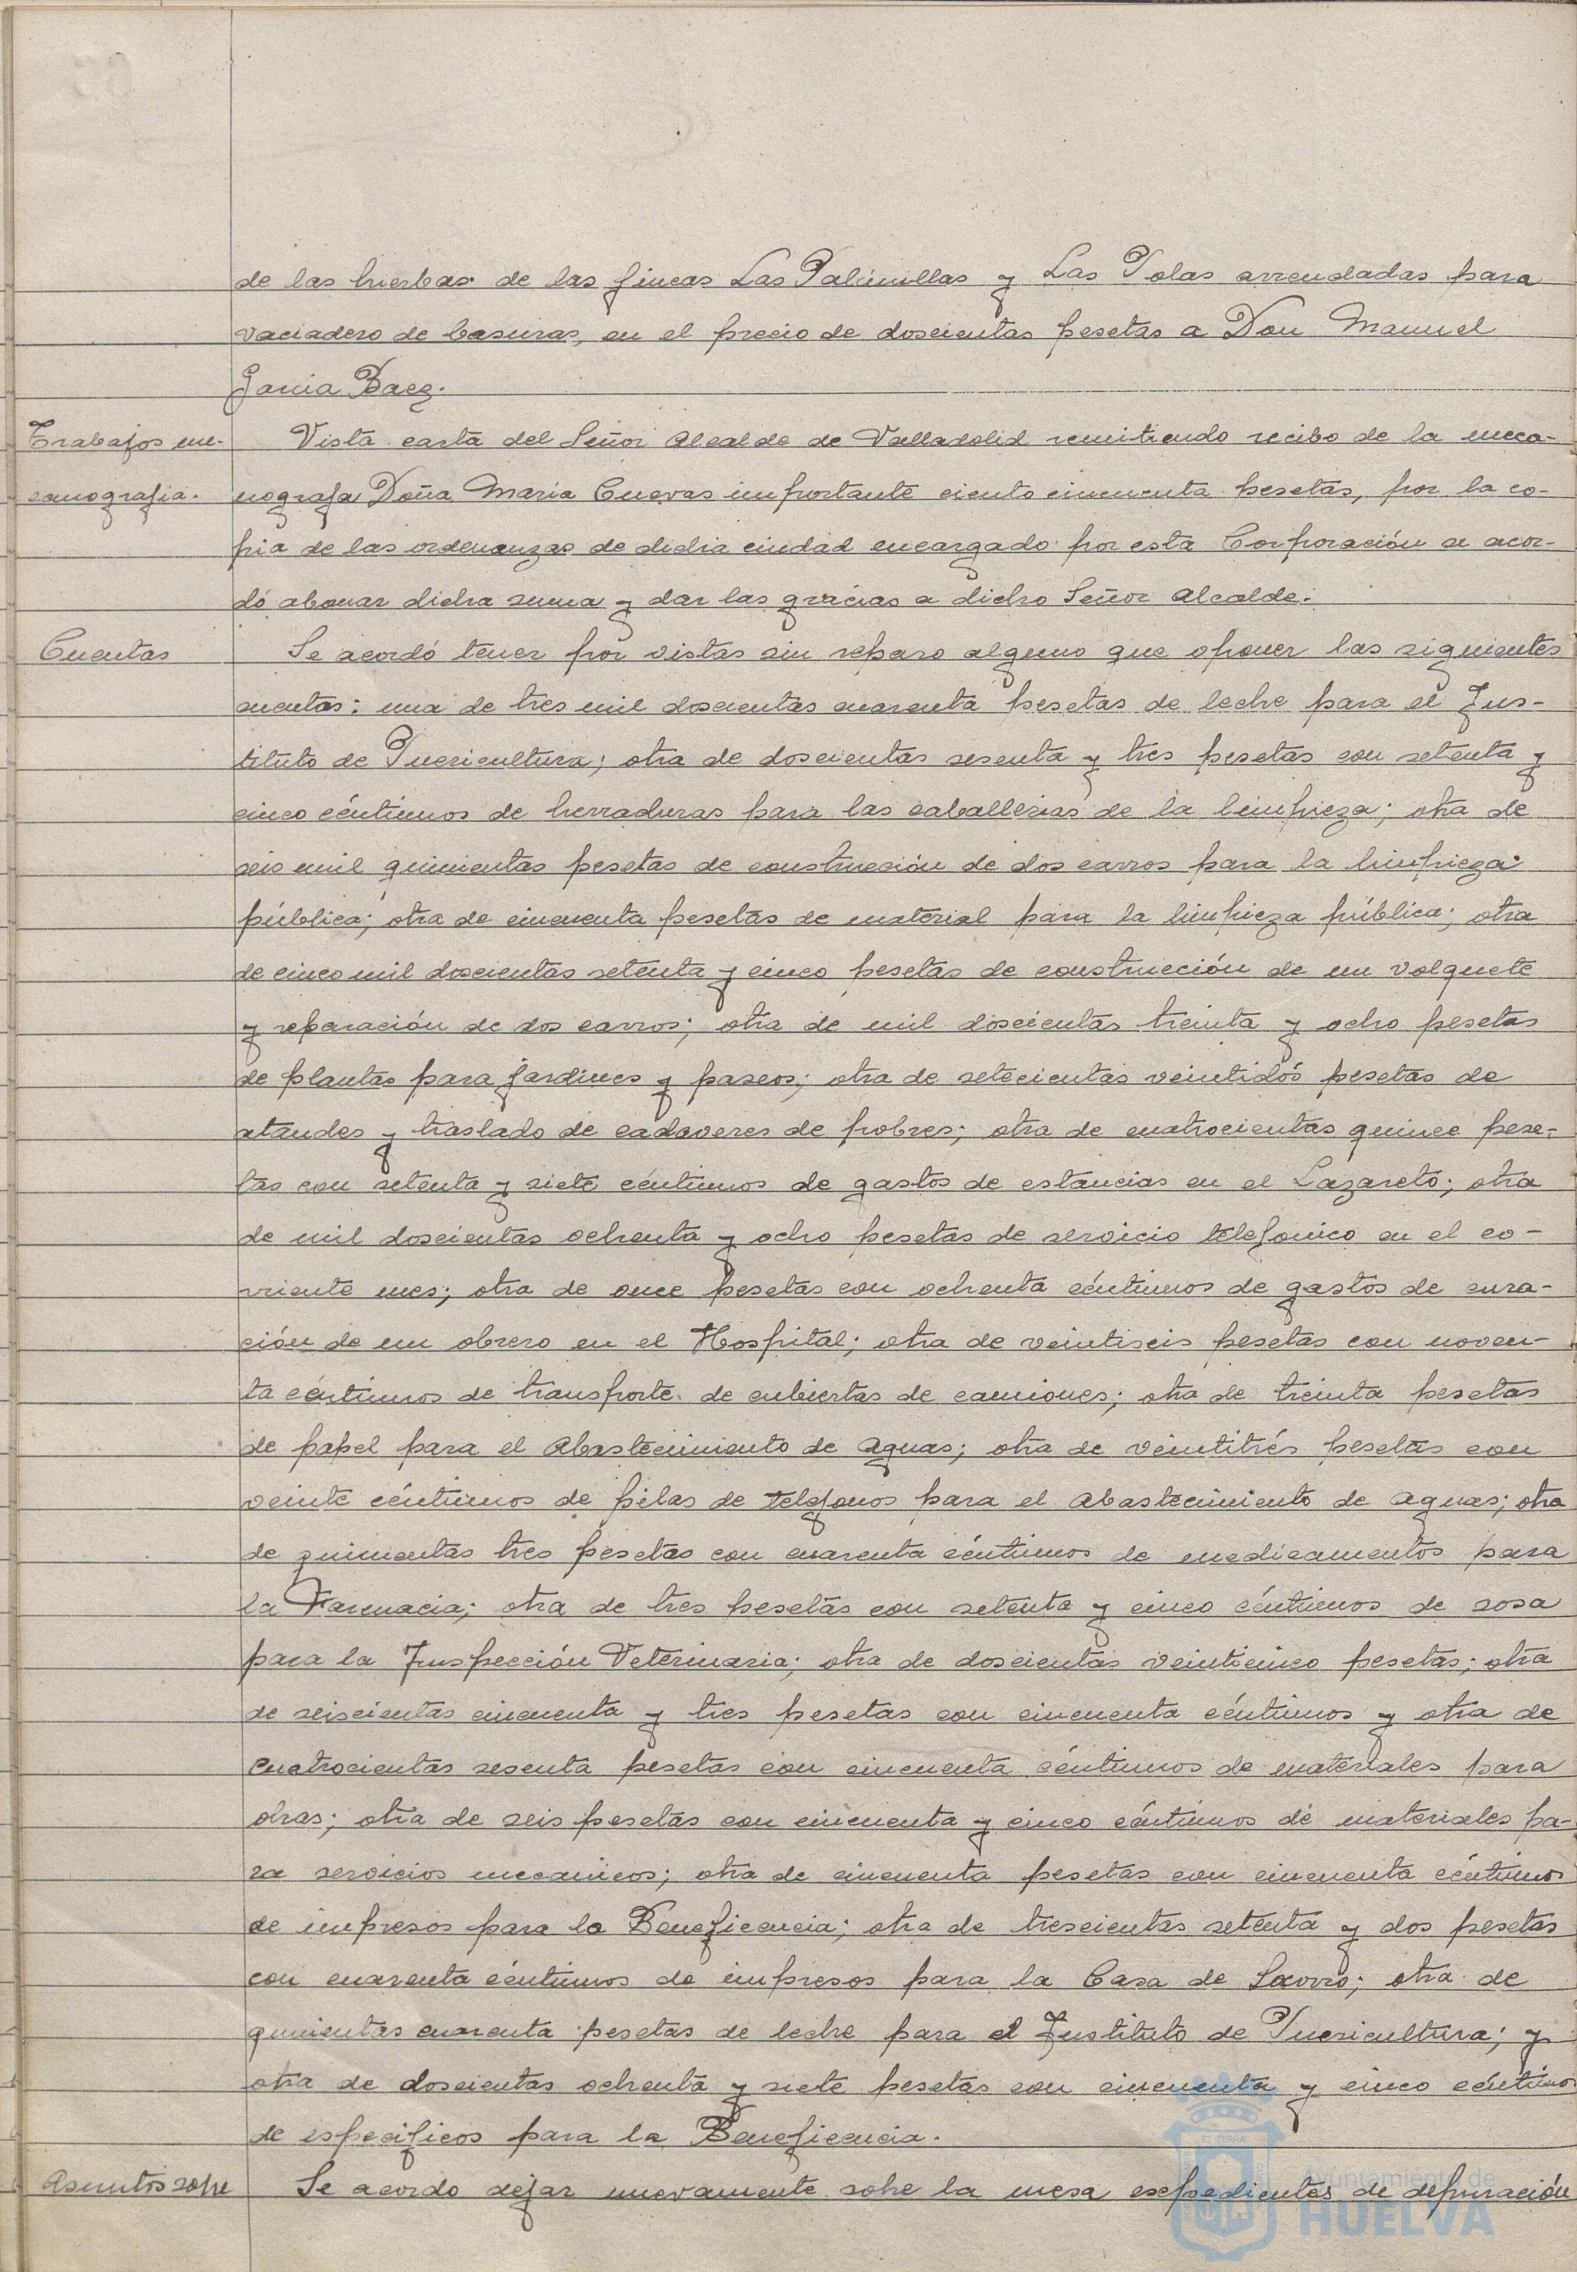 de las hierbas de las fincas Las Palmillas y Las Tolas arrendadas para
vaciadero de basuras, en el precio de doscientas pesetas a Don Manuel
Garcia Baez.
Trabajos me-
canografia.
Vista carta del Señor Alcalde de Valladolid remitiendo recibo de la meca-
nografa Doña Maria Cuevas importante ciento cincuenta pesetas, por la co-
pia de las ordenanzas de dicha ciudad encargado por esta Corporación se acor-
dó abonar dicha suma y dar las gracias a dicho Señor Alcalde.
Cuentas
Se acordó tener por vistas sin reparo alguno que oponer las siguientes
cuentas: una de tres mil doscientas cuarenta pesetas de leche para el Ins-
tituto de Puericultura; otra de doscientas sesenta y tres pesetas con setenta y
cinco céntimos de herraduras para las caballerias de la limpieza; otra de
seis mil quinientas pesetas de construcción de dos carros para la limpieza
pública; otra de cincuenta pesetas de material para la limpieza pública; otra
de cinco mil doscientas setenta y cinco pesetas de construcción de un volquete
y reparación de dos carros; otra de mil doscientas treinta y ocho pesetas
de plantas para jardines y paseos; otra de setecientas veintidós pesetas de
ataudes y traslado de cadaveres de pobres; otra de cuatrocientas quince pese-
tas con setenta y siete céntimos de gastos de estancias en el Lazareto; otra
de mil doscientas ochenta y ocho pesetas de servicio telefonico en el co-
rriente mes; otra de once pesetas con ochenta céntimos de gastos de cura-
ción de un obrero en el Hospital; otra de veintiseis pesetas con noven-
ta céntimos de transporte de cubiertas de camiones; otra de treinta pesetas
de papel para el Abastecimiento de Aguas; otra de veintitrés pesetas con
veinte céntimos de pilas de telefonos para el Abastecimiento de Aguas; otra
de quinientas tres pesetas con cuarenta céntimos de medicamentos para
la Farmacia; otra de tres pesetas con setenta y cinco céntimos de sosa
para la Inspección Veterinaria; otra de doscientas veinticinco pesetas; otra
de seiscientas cincuenta y tres pesetas con cincuenta céntimos y otra de
cuatrocientas sesenta pesetas con cincuenta céntimos de materiales para
obras; otra de seis pesetas con cincuenta y cinco céntimos de materiales pa-
ra servicios mecanicos; otra de cincuenta pesetas con cincuenta céntimos
de impresos para la Beneficencia; otra de trescientas setenta y dos pesetas
con cuarenta céntimos de impresos para la Casa de Socorro; otra de
quinientas cuarenta pesetas de leche para el Instituto de Puericultura; y
otra de doscientas ochenta y siete pesetas con cincuenta y cinco céntimos
de especificos para la Beneficencia.
Asuntos sobre
Se acordo dejar nuevamente sobre la mesa expedientes de depuración
Ayuntamiento de
HUELVA